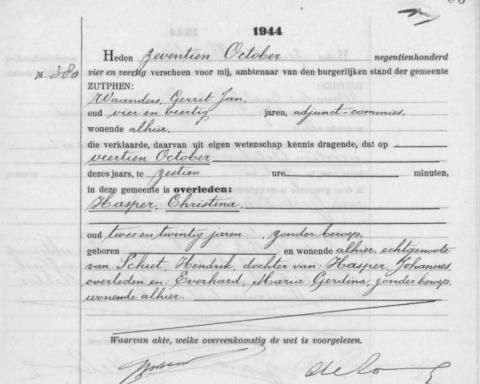 1944
Heden zeventien October negentienhonderd
vier en veertig verscheen voor mij, ambtenaar van den burgerlijken stand der gemeente
No 380
ZUTPHEN:
Waanders, Gerrit Jan,
oud vier en veertig jaren, adjunct-commies,
wonende alhier,
die verklaarde, daarvan uit eigen wetenschap kennis dragende, dat op
veertien October
dezes jaars, te zestien ure minuten,
in deze gemeente is overleden:
Hasper, Christina,
oud twee en twintig jaren, zonder beroep,
geboren en wonende alhier, echtgenoote
van Schut, Hendrik, dochter van: Hasper, Johannes,
overleden en: Everhard, Maria Gerdina, zonder beroep,
wonende alhier.
Waarvan akte, welke overeenkomstig de wet is voorgelezen.